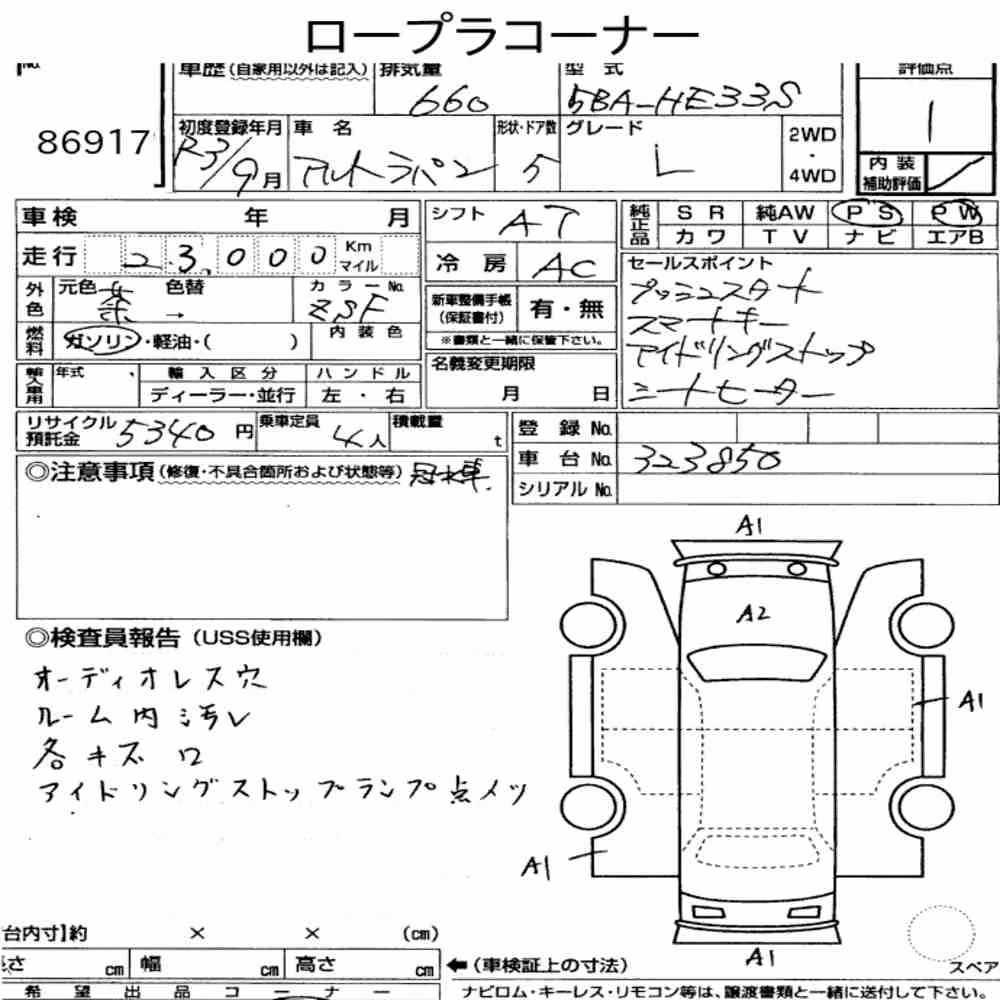 ロープラコーナー
No.
86917
車歴 (自家用以外は記入) 排気量 型式 評価点
660 5BA-HE33S 1
初度登録年月 車名 形状・ドア数 グレード 2WD・4WD
R3/9月 アルトラパン 5 L
内装補助評価
車検 年 月
シフト AT
純正品 SR 純AW PS PW
カワ TV ナビ エアB
走行 23,000 Km マイル
冷房 AC
セールスポイント
プッシュスタート
スマートキー
アイドリングストップ
シートヒーター
外色 元色 茶 → 色替 カラーNo. ZSF
新車整備手帳 (保証書付) 有・無
※書類と一緒に保管下さい。
燃料 ガソリン・軽油・( ) 内装色
名義変更期限
月 日
輸入車用 年式 輸入区分 ハンドル
ディーラー・並行 左・右
リサイクル預託金 5340円 乗車定員 4人 積載量 t
登録No.
車台No. 323850
シリアルNo.
◎注意事項(修復・不具合箇所および状態等) 冠水車
◎検査員報告 (USS使用欄)
オーディオレス穴
ルーム内汚レ
各キズ
アイドリングストップランプ点メツ
A1
A2
A1
A1
A1
台内寸】約 × × (cm)
長さ cm 幅 cm 高さ cm
←(車検証上の寸法)
スペア
希望出品コーナー
ナビロム・キーレス・リモコン等は、譲渡書類と一緒に送付して下さい。